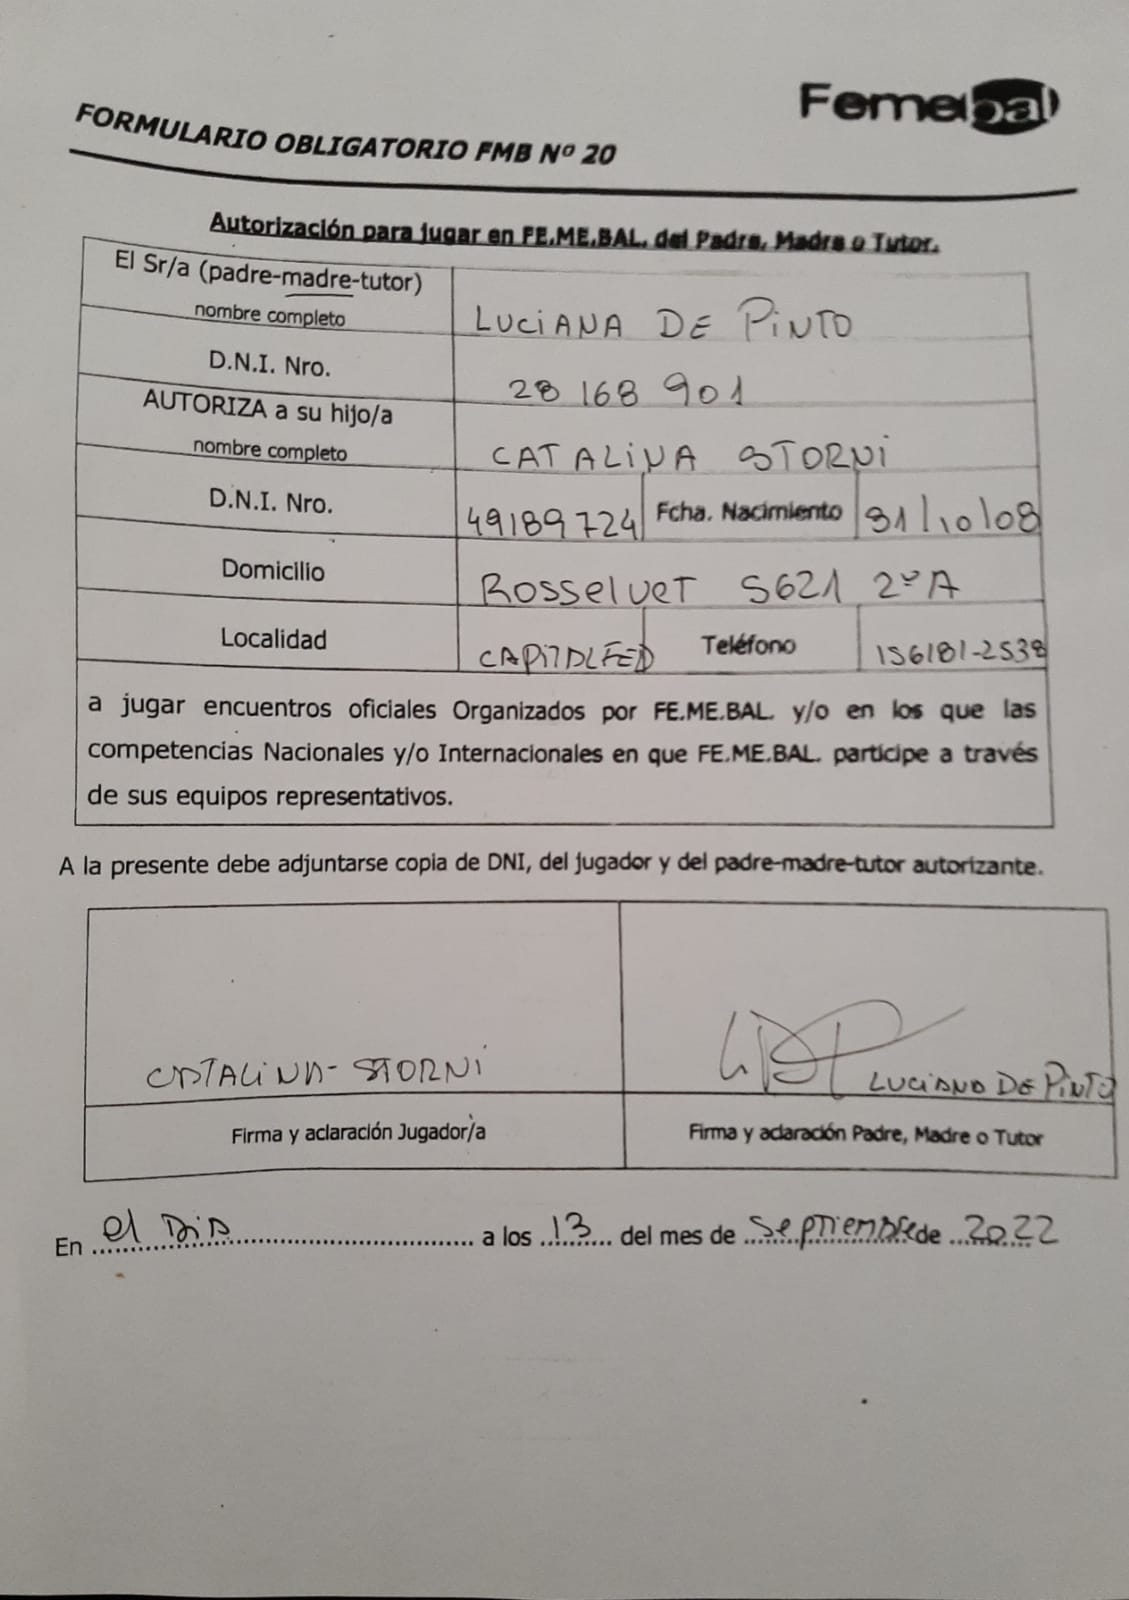 Femebal
FORMULARIO OBLIGATORIO FMB Nº 20
Autorización para jugar en FE.ME.BAL. del Padre, Madre o Tutor.
El Sr/a (padre-madre-tutor)
nombre completo
LUCiANA DE PiNTO
D.N.I. Nro.
28 168 901
AUTORIZA a su hijo/a
nombre completo
CATALiNA STORNi
D.N.I. Nro.
49189724
Fcha. Nacimiento
31/10/08
Domicilio
Rosselvet 5621 2º A
Localidad
CAPiTAL FED
Teléfono
156181-2538
a jugar encuentros oficiales Organizados por FE.ME.BAL. y/o en los que las
competencias Nacionales y/o Internacionales en que FE.ME.BAL. participe a través
de sus equipos representativos.
A la presente debe adjuntarse copia de DNI, del jugador y del padre-madre-tutor autorizante.
CATALiNA - STORNi
LUCiANA DE PiNTO
Firma y aclaración Jugador/a
Firma y aclaración Padre, Madre o Tutor
En el DiA a los 13 del mes de Septiembre de 2022